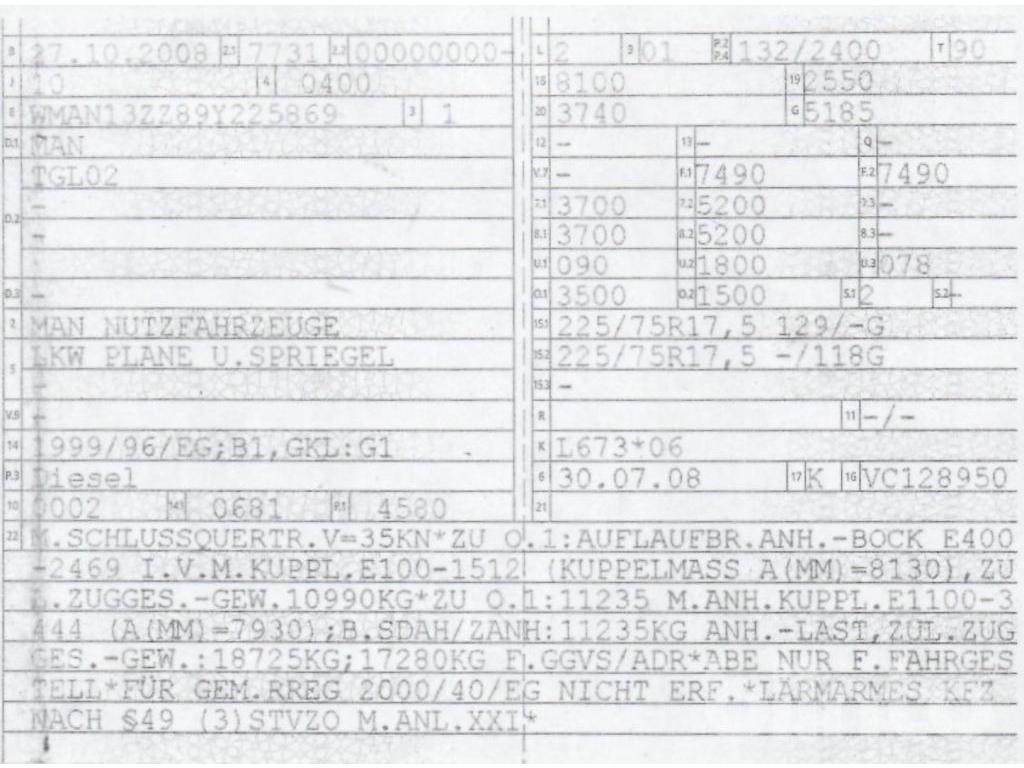 B 27.10.2008 2.1 7731 2.2 00000000-
J 10 4 0400
E WMAN13ZZ89Y225869 3 1
D.1 MAN
TGL02
D.2 -
-
D.3 -
2 MAN NUTZFAHRZEUGE
5 LKW PLANE U.SPRIEGEL
-
V.9 -
14 1999/96/EG;B1,GKL:G1
P.3 Diesel
10 0002 14.1 0681 P.1 4580
L 2 9 01 P.2 P.4 132/2400 T 90
18 8100 19 2550
20 3740 G 5185
12 - 13 - Q -
V.7 - F.1 7490 F.2 7490
7.1 3700 7.2 5200 7.3 -
8.1 3700 8.2 5200 8.3 -
U.1 090 U.2 1800 U.3 078
O.1 3500 O.2 1500 S.1 2 S.2 -
15.1 225/75R17,5 129/-G
15.2 225/75R17,5 -/118G
15.3 -
R 11 -/-
K L673*06
6 30.07.08 17 K 16 VC128950
21
22 M.SCHLUSSQUERTR.V=35KN*ZU O.1:AUFLAUFBR.ANH.-BOCK E400
-2469 I.V.M.KUPPL.E100-1512 (KUPPELMASS A(MM)=8130),ZU
L.ZUGGES.-GEW.10990KG*ZU O.1:11235 M.ANH.KUPPL.E1100-3
444 (A(MM)=7930);B.SDAH/ZANH:11235KG ANH.-LAST,ZUL.ZUG
GES.-GEW.:18725KG;17280KG F.GGVS/ADR*ABE NUR F.FAHRGES
TELL*FÜR GEM.RREG 2000/40/EG NICHT ERF.*LÄRMARMES KFZ
NACH §49 (3)STVZO M.ANL.XXI*